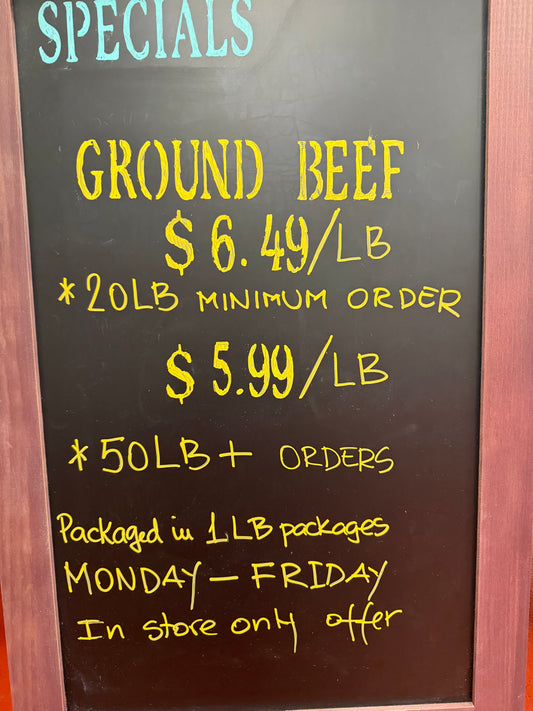 SPECIALS
GROUND BEEF
$6.49/LB
*20LB MINIMUM ORDER
$5.99/LB
*50LB+ ORDERS
Packaged in 1LB packages
MONDAY - FRIDAY
In store only offer